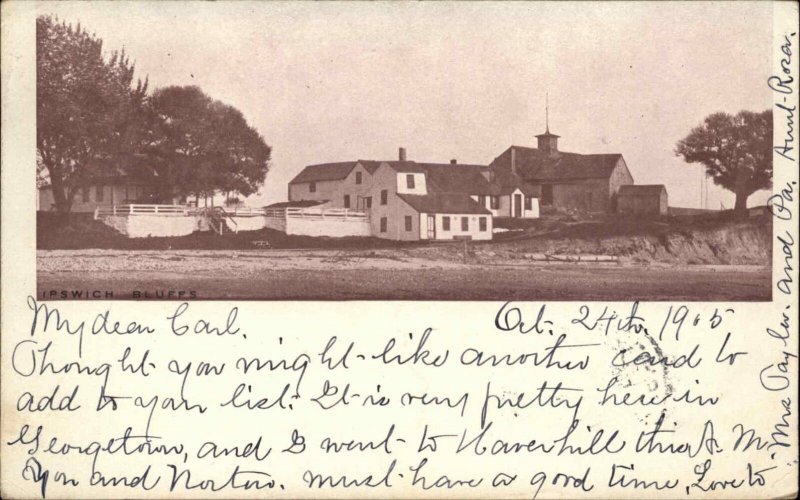 IPSWICH BLUFFS
My dear Carl. Oct. 24th, 1905
Thought you might like another card to
add to your list. It is very pretty here in
Georgetown, and I went to Haverhill this A. M.
You and Norton. must have a good time, Love to
Mrs Taylor. and Pa. and Pa. Aunt Rosa.